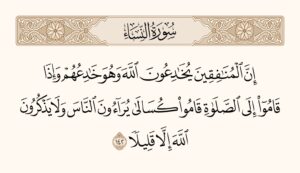 سُورَةُ النِّسَاءِ
إِنَّ الْمُنَافِقِينَ يُخَادِعُونَ اللَّهَ وَهُوَ خَادِعُهُمْ وَإِذَا
قَامُوا إِلَى الصَّلَوٰةِ قَامُوا كُسَالَىٰ يُرَاءُونَ النَّاسَ وَلَا يَذْكُرُونَ
اللَّهَ إِلَّا قَلِيلًا ١٤٢